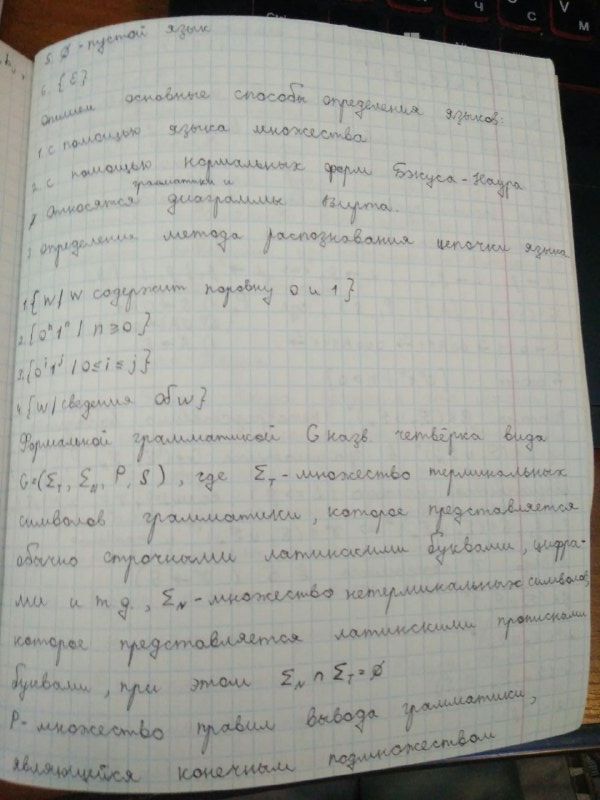 5. ∅ - пустой язык
6. {ε}
Опишем основные способы определения языков:
1. с помощью языка множества
2. с помощью нормальных форм Бэкуса-Наура
грамматики и
Относятся диаграммы Вирта.
3 определения метода распознования цепочки языка
1. {w | w содержит поровну 0 и 1}
2. {0ⁿ1ⁿ | n ≥ 0}
3. {0ⁱ1ʲ | 0 ≤ i ≤ j}
4. {w | сведения об w}
Формальной грамматикой G назв. четвёрка вида
G=(Σ_T, Σ_N, P, S), где Σ_T - множество терминальных
символов грамматики, которое представляется
обычно строчными латинскими буквами, цифра-
ми и т.д., Σ_N - множество нетерминальных символов,
которое представляется латинскими прописными
буквами, при этом Σ_N ∩ Σ_T = ∅
P - множество правил вывода грамматики,
являющейся конечным подмножеством